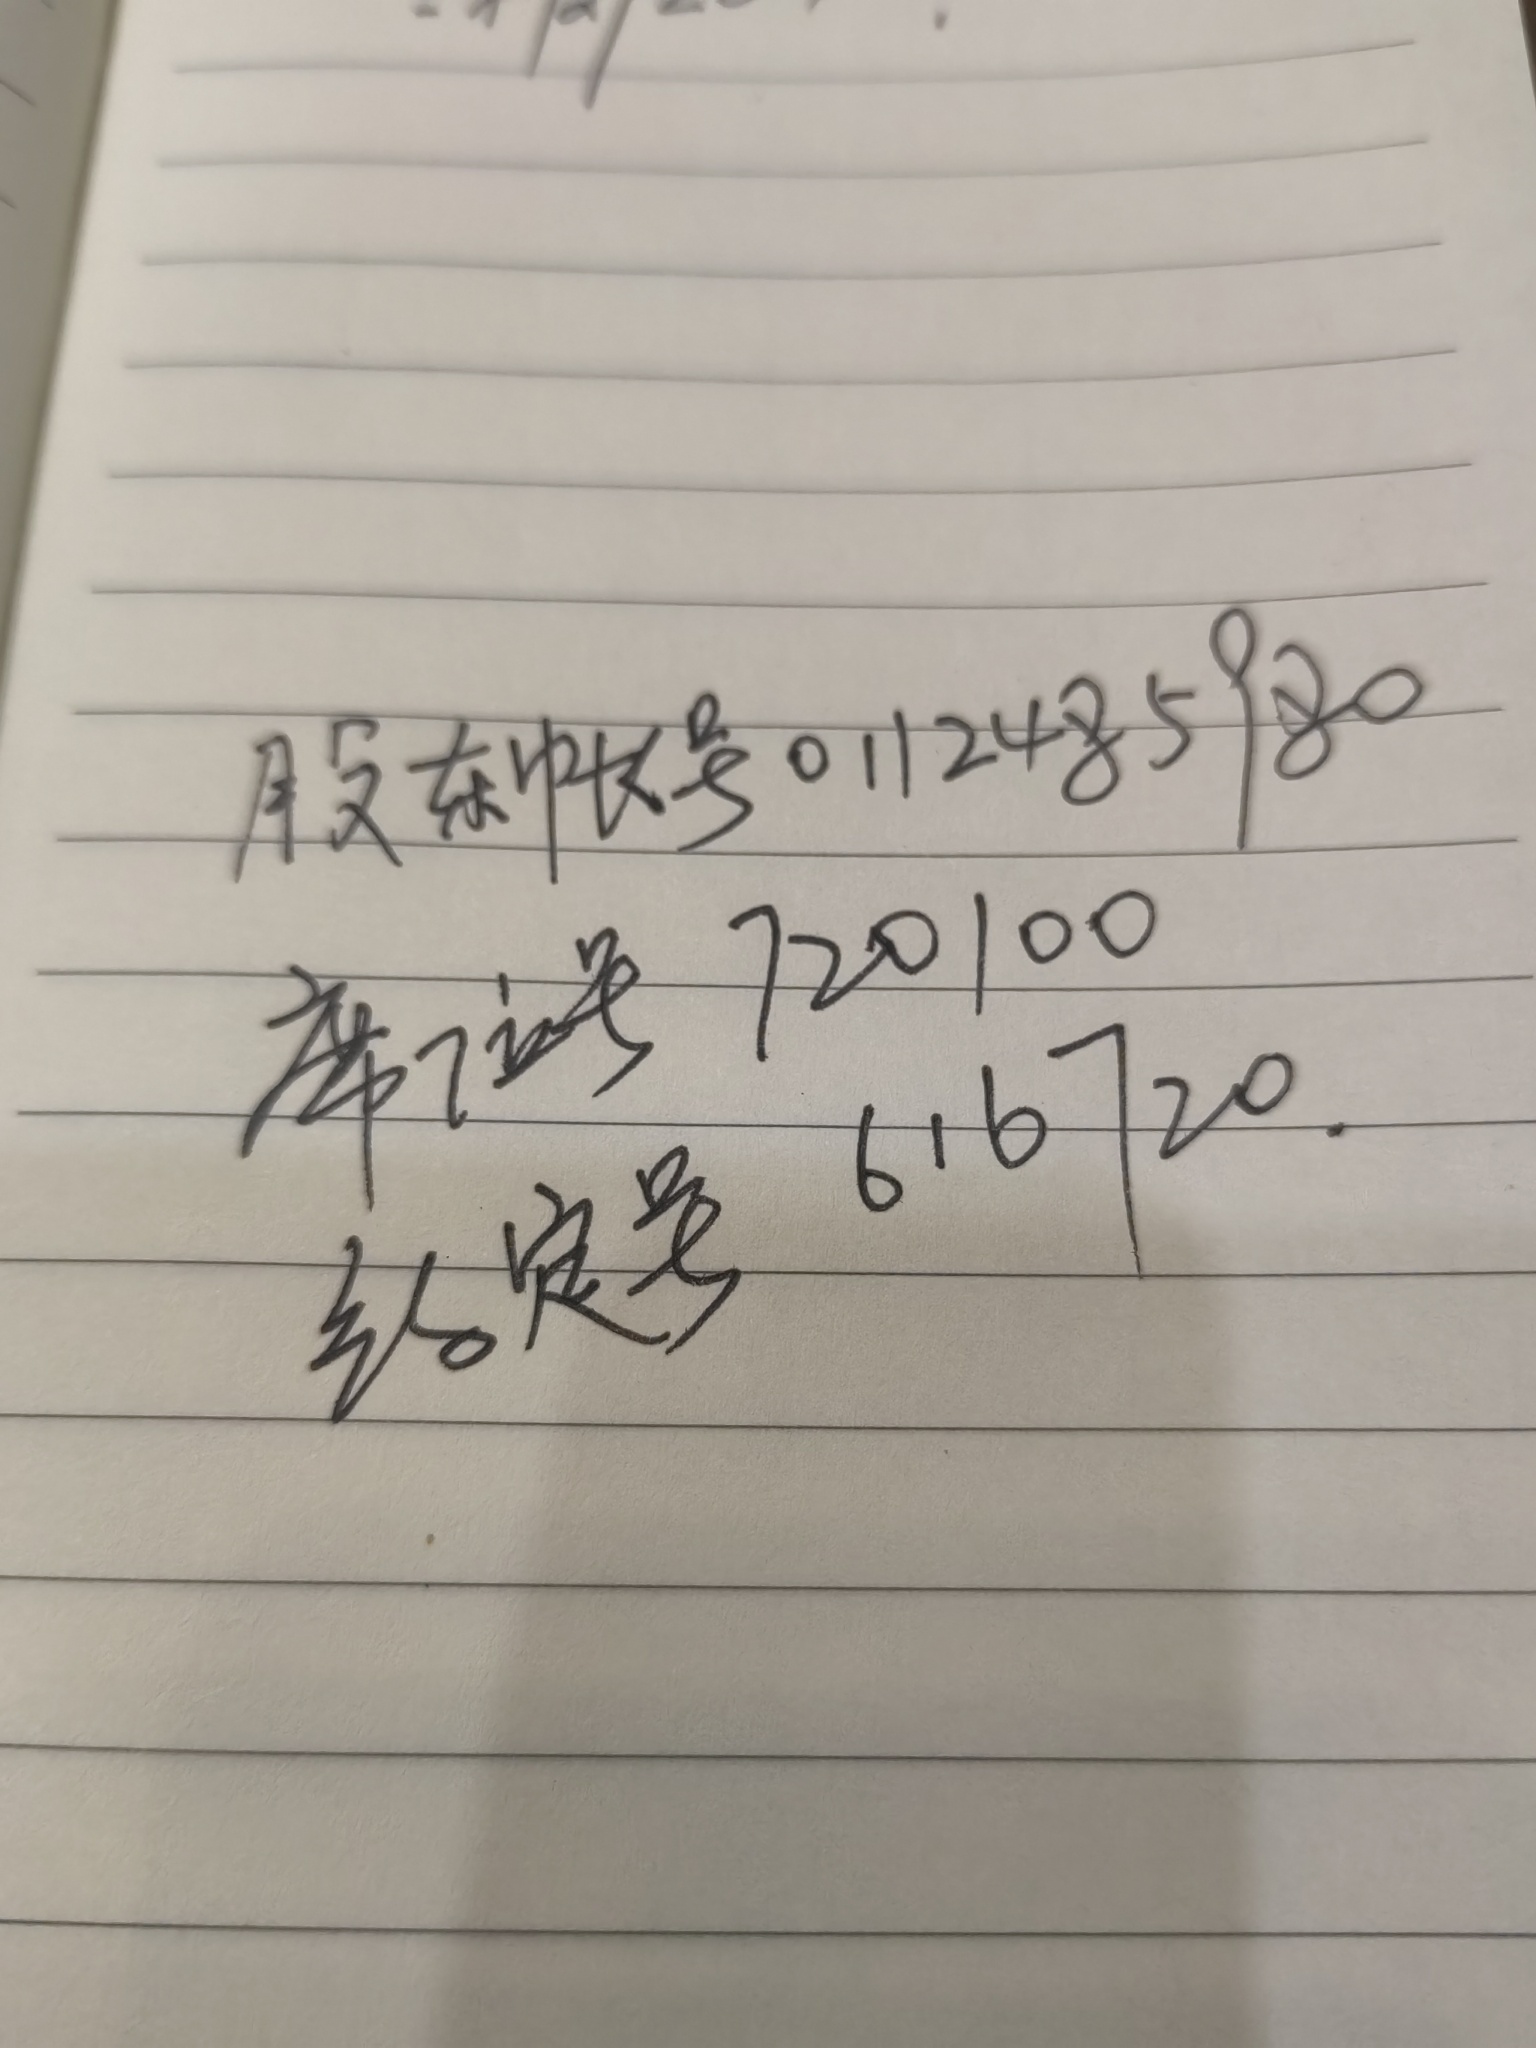 股东帐号 0112485980
席位号 720100
约定号 616720.